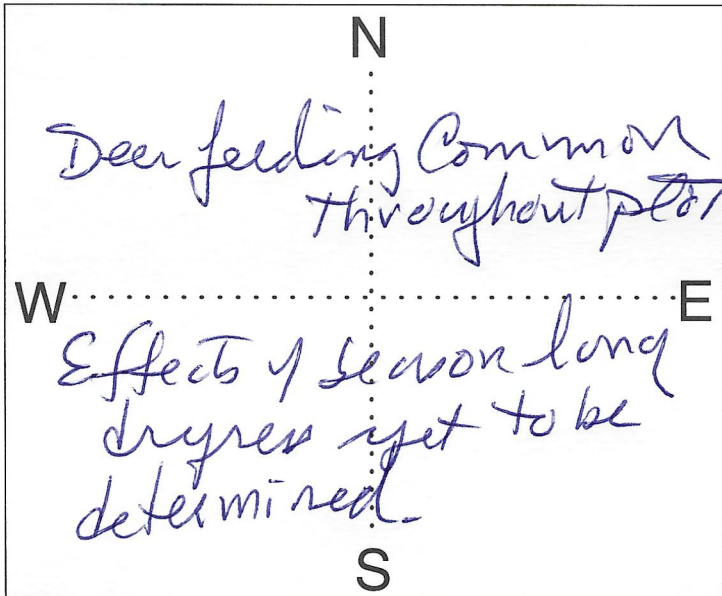 N
Deer feeding Common
throughout plot
W E
Effects of season long
dryness yet to be
determined.
S